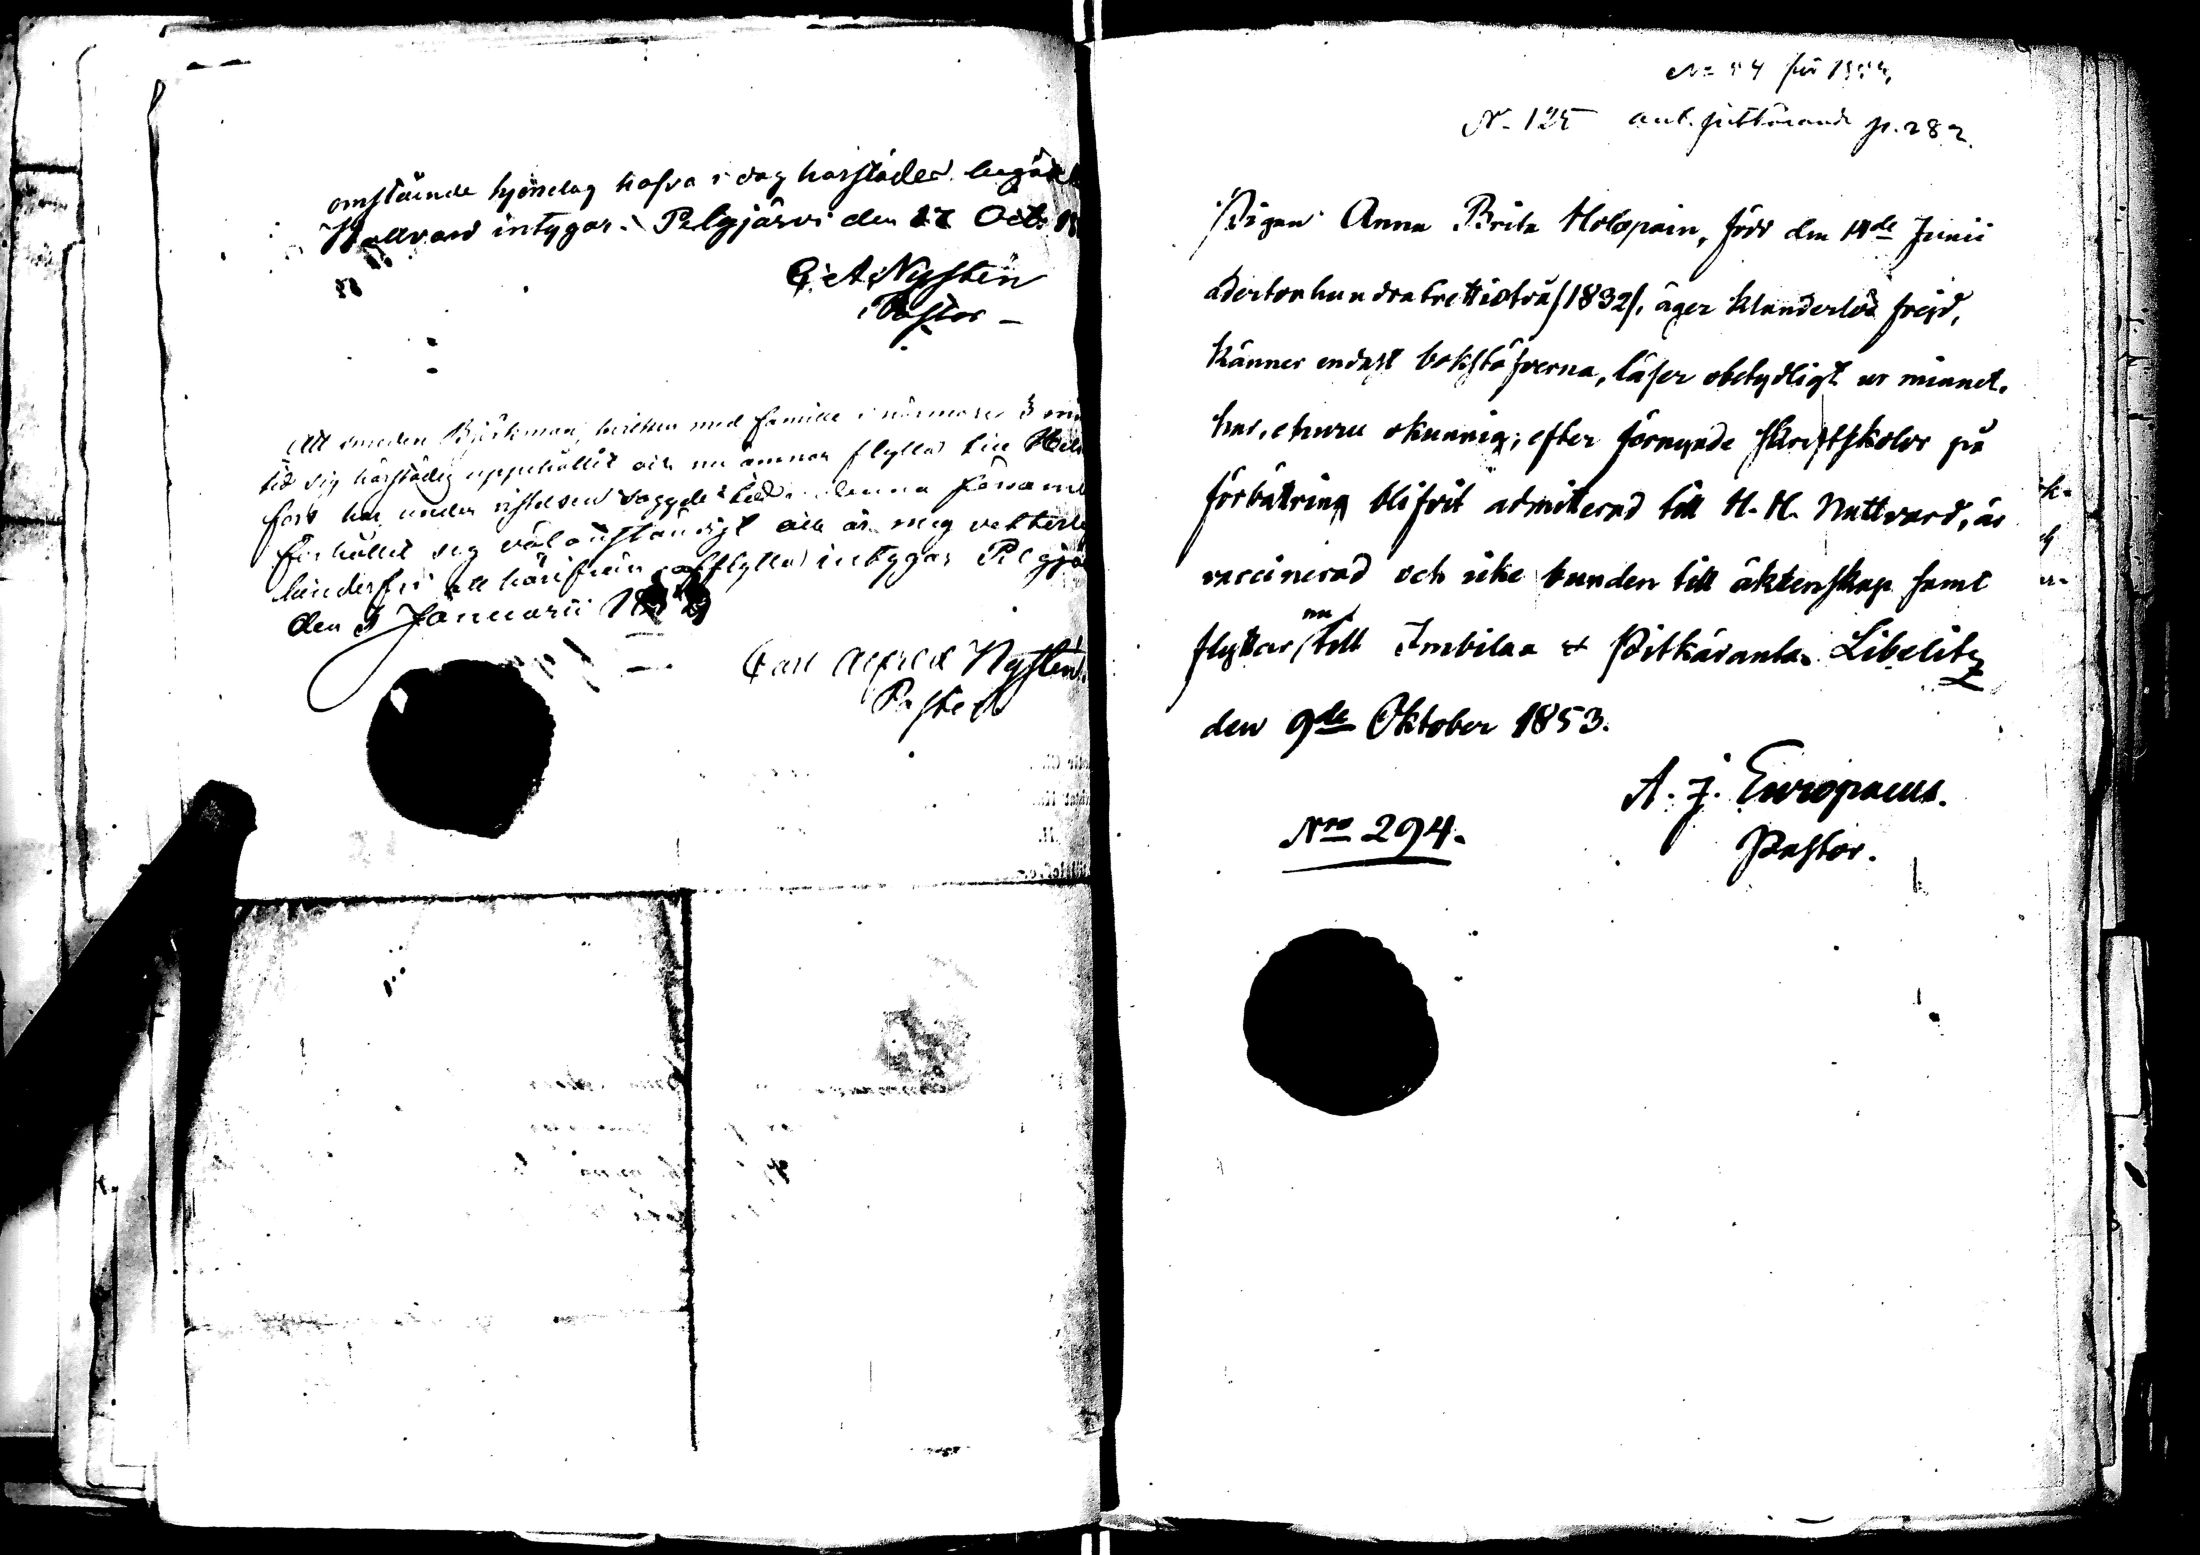 omstående hjonelag hafva i dag härstädes begått
Nattvard intygar. Pelgjärvi den 27 Oct.
C. A. Nystén
Pastor
Att smeden Björkman, hvilken med familie i närmare 3
tid sig härstädes uppehållit och nu ämnar flytta till
fors har under vistelsen
förhållit sig väl anständigt och är mig vetterl
hinderfri att härifrån afflytta intygar Pelgjä
den 3 Januarii
Carl Alfred Nystén
Pastor
för
N. 125 ant. Pittkäranda p. 282.
Pigan Anna Brita Holopain, född den 14de Junii
adertonhundratrettiotvå /1832/, äger klanderlös frejd,
känner endast bokstäfverna, läser obetydligt ur minnet,
har, ehuru okunnig, efter förnyade skriftskolor på
förbättring blifvit admitterad till H. H. Nattvard, är
vaccinerad och icke bunden till äktenskap samt
flyttar nu till Imbilax et Pitkäranta. Libelitz
den 9de Oktober 1853.
A. J. Europaeus.
Pastor.
Nro 294.